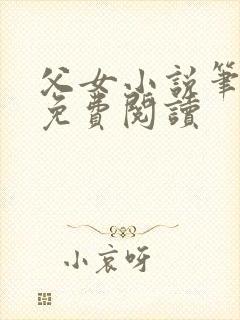 父女小说笔
免費閱讀
小哀呀